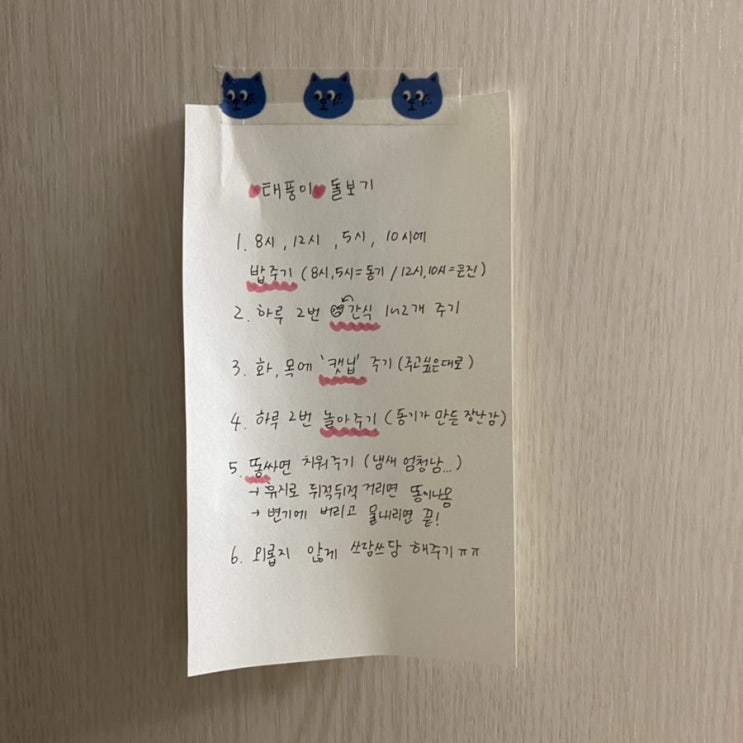 태풍이 돌보기
1. 8시, 12시, 5시, 10시에
밥주기 (8시,5시=동기 / 12시,10시=은진)
2. 하루 2번 간식 1~2개 주기
3. 화, 목에 '캣닙' 주기 (주고싶은대로)
4. 하루 2번 놀아주기 (동기가 만든 장난감)
5. 똥싸면 치워주기 (냄새 엄청남...)
→ 휴지로 뒤적뒤적 거리면 똥이나옴
→ 변기에 버리고 물내리면 끝!
6. 외롭지 않게 쓰담쓰담 해주기ㅠㅠ